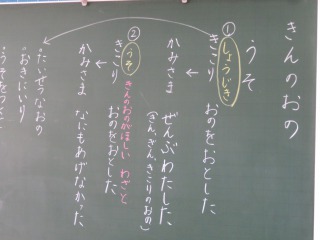 きんのおの
うそ
①しょうじき
きこり おのをおとした
↓
かみさま ぜんぶわたした
(きん、ぎん、きこりのおの)
②うそ きんのおのがほしい わざと
きこり おのをおとした
↓
かみさま なにもあげなかった
・たいせつなおの
・おきにいり